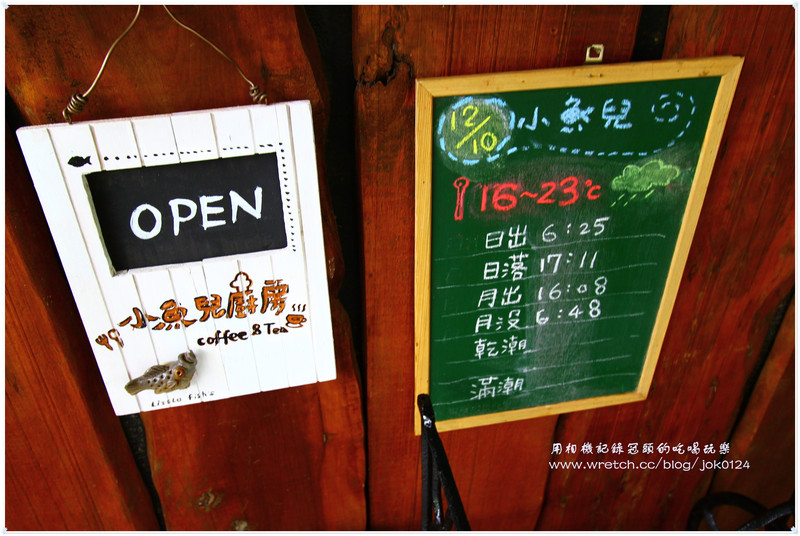 OPEN
小魚兒廚房
coffee & Tea
Little Fish's
12/10 小魚兒
16~23℃
日出 6:25
日落 17:11
月出 16:08
月沒 6:48
乾潮
滿潮
用相機記錄冠頤的吃喝玩樂
www.wretch.cc/blog/jok0124